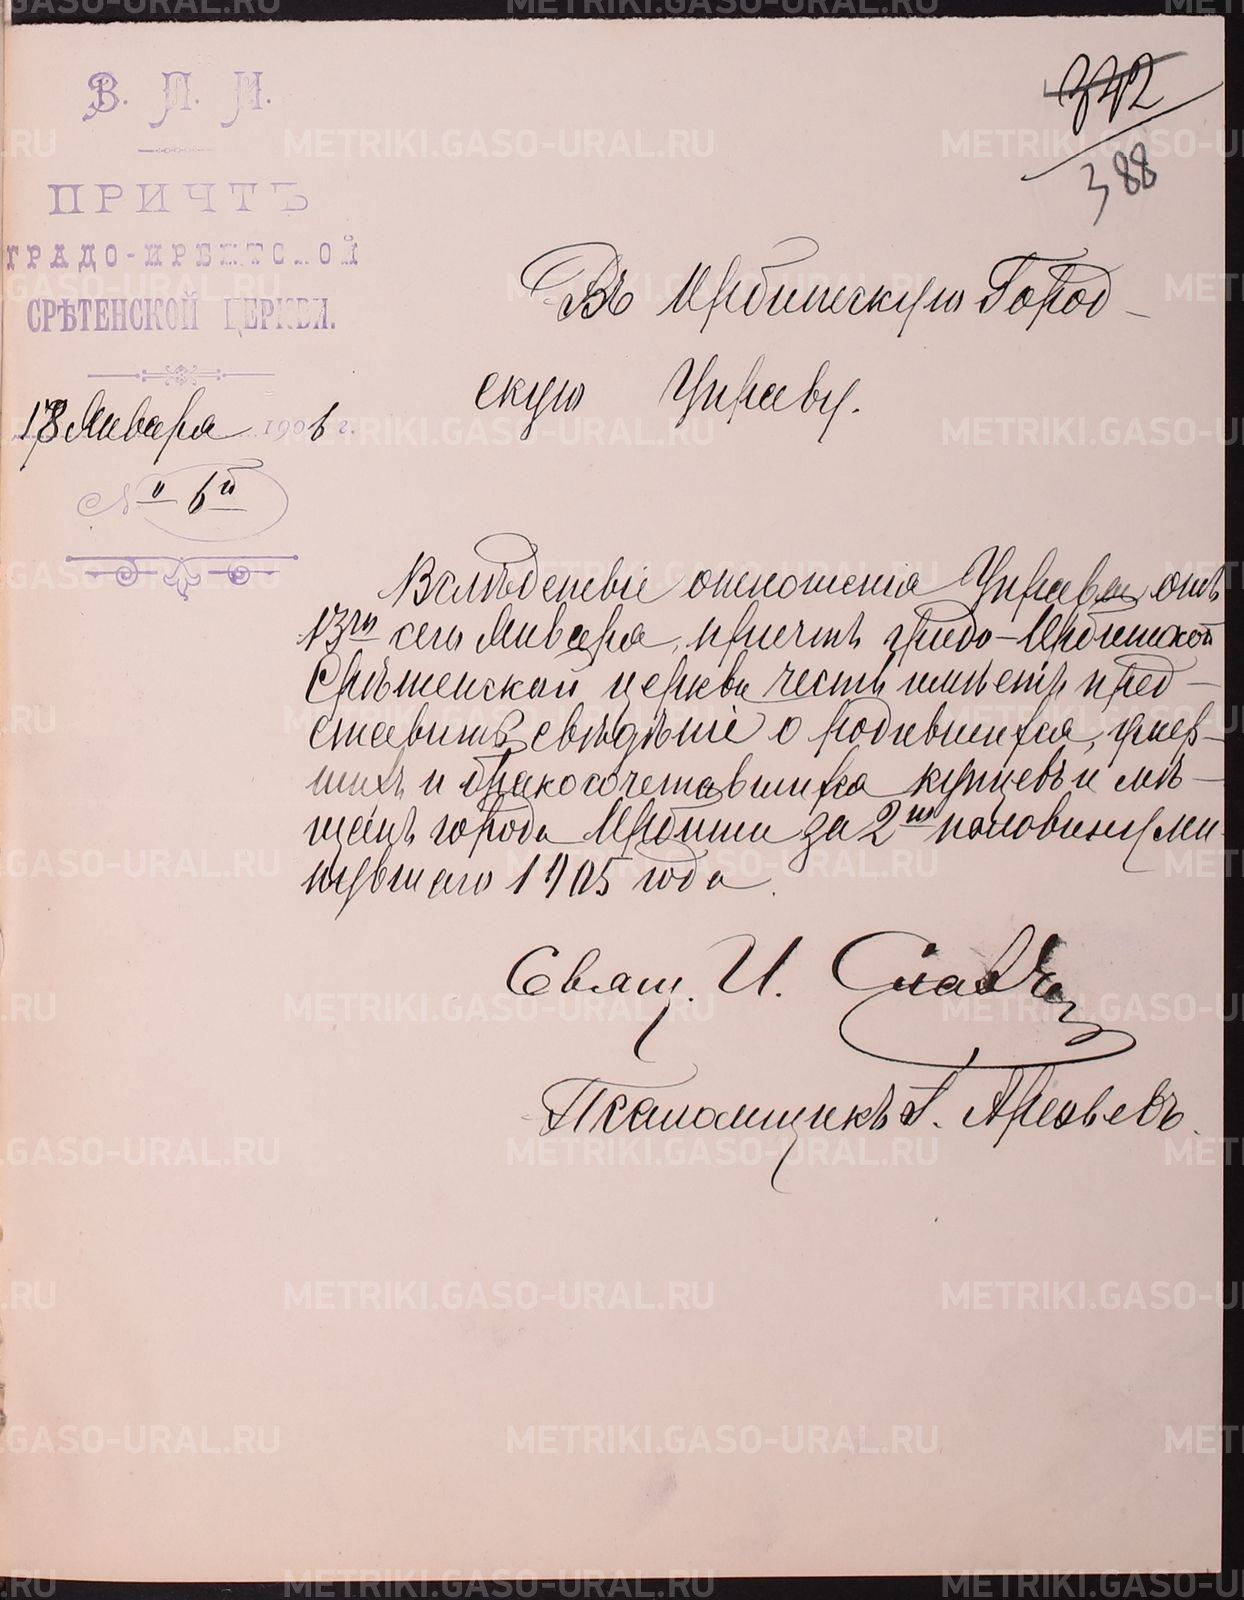 342
388
В. П. И.
ПРИЧТЪ
ГРАДО-ИРБИТСКОЙ
СРѢТЕНСКОЙ ЦЕРКВИ.
18 Января 1906 г.
№ 6й
Въ Ирбитскую Город-
скую Управу.
Вслѣдствіе отношенія Управы отъ
13го сего Января, причтъ градо-Ирбитской
Срѣтенской церкви честь имѣетъ пред-
ставить свѣдѣніе о родившихся, умер-
шихъ и бракосочетавшихся купцевъ и мѣ-
щанъ города Ирбити за 2ую половину ми-
нувшаго 1905 года.
Свящ. И.
Псаломщикъ А.
METRIKI.GASO-URAL.RU